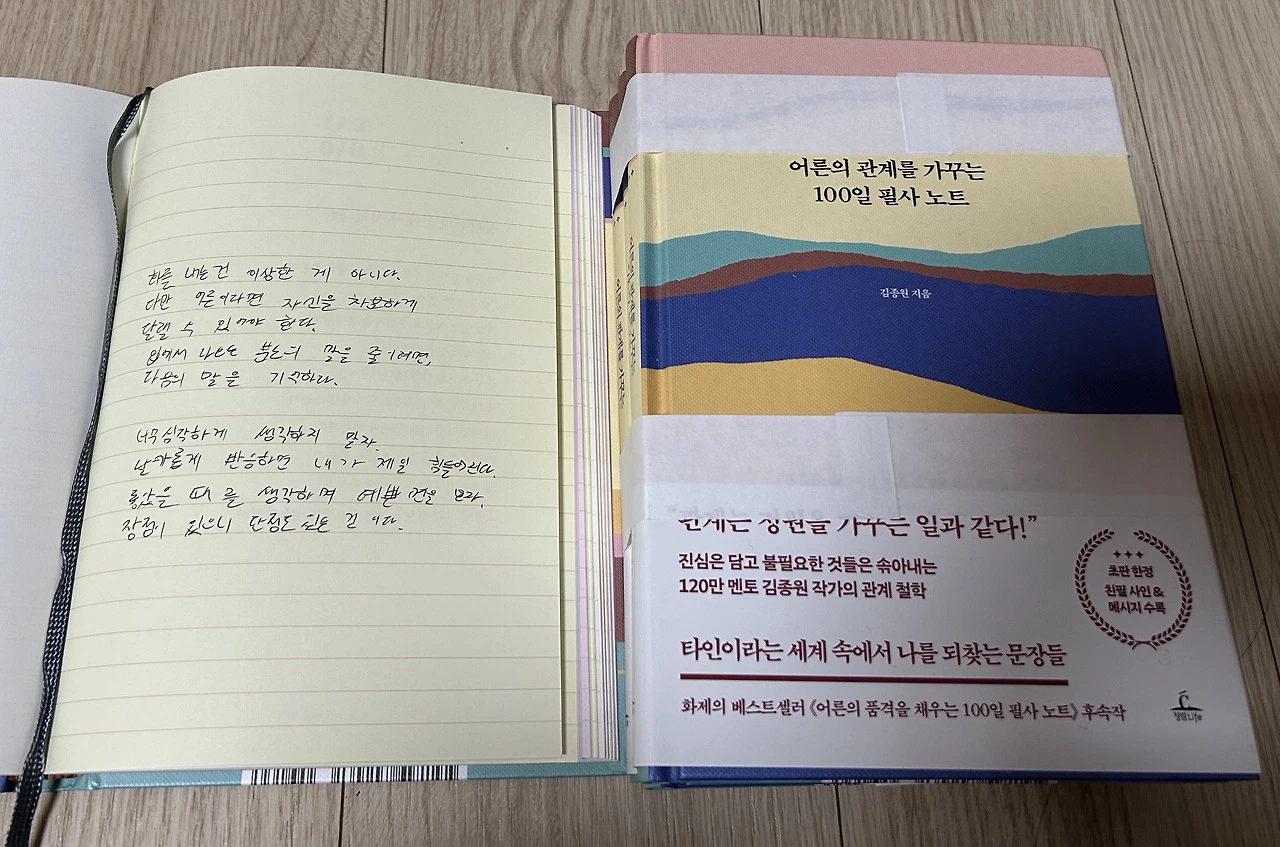 화를 내는건 이상한 게 아니다.
다만 어른이라면 자신을 차분하게
달랠 수 있어야 한다.
입에서 나오는 분노의 말을 줄이려면,
다음의 말을 기억하라.
너무 심각하게 생각하지 말자.
날카롭게 반응하면 내가 제일 힘들어진다.
좋았을 때를 생각하며 예쁜 면을 보자.
장점이 있으니 단점도 있는 것이다.
어른의 관계를 가꾸는
100일 필사 노트
김종원 지음
어른의 관계를 가꾸는
"관계는 정원을 가꾸는 일과 같다!"
진심은 담고 불필요한 것들은 솎아내는
120만 멘토 김종원 작가의 관계 철학
초판 한정
친필 사인 &
메시지 수록
타인이라는 세계 속에서 나를 되찾는 문장들
화제의 베스트셀러 《어른의 품격을 채우는 100일 필사 노트》 후속작
청림Life